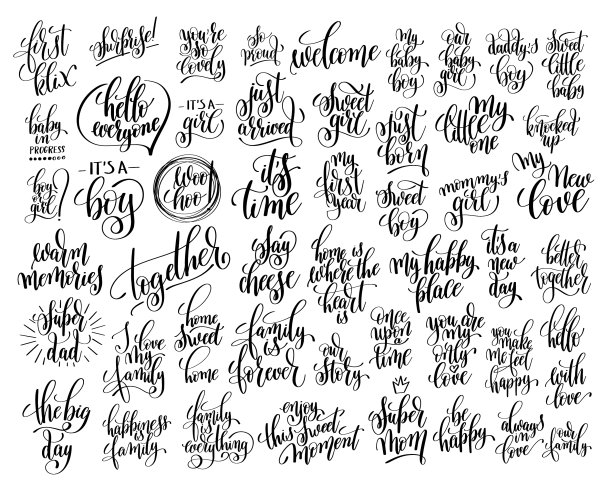 first
klix
surprise!
you're
so
lovely
so
proud
welcome
My
baby
boy
our
baby
girl
daddy's
boy
Sweet
little
baby
baby
in
PROGRESS
hello
everyone
-IT'S A-
girl
just
arrived
Sweet
girl
just
born
My
little
one
knocked
up
boy
or
girl?
-IT'S A-
boy
woo
hoo!
it's
time
My
first
year
Sweet
boy
mommy's
girl
My New
Love
warm
memories
together
Say
cheese
home is
where the
heart
is
my happy
place
it's a
new
day
better
together
Super
dad
I love
my
family
home
Sweet
home
family
is
forever
our
story
once
upon
a
time
you are
my
only
love
you
make
me feel
happy
hello
with
love
the big
day
happiness
is
family
family
is
everything
enjoy
this sweet
moment
Super
Mom
be
happy
always
in
love
our
family